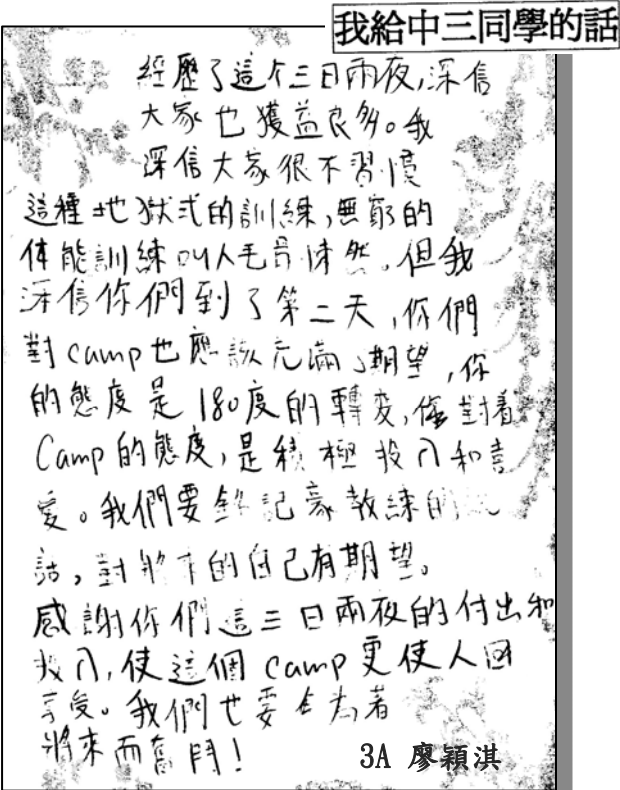 我給中三同學的話
經歷了這个三日兩夜,深信
大家也獲益良多。我
深信大家很不習慣
這種地獄式的訓練,無窮的
体能訓練叫人毛骨悚然。但我
深信你們到了第二天,你們
對camp也應該充滿了期望,你
的態度是180度的轉变,對着
Camp的態度,是積極投入和喜
愛。我們要銘記家教練的說
話,對將來的自己有期望。
感謝你們這三日兩夜的付出和
投入,使這個camp更使人回
享受。我們也要為着
將來而奮鬥!
3A 廖穎淇